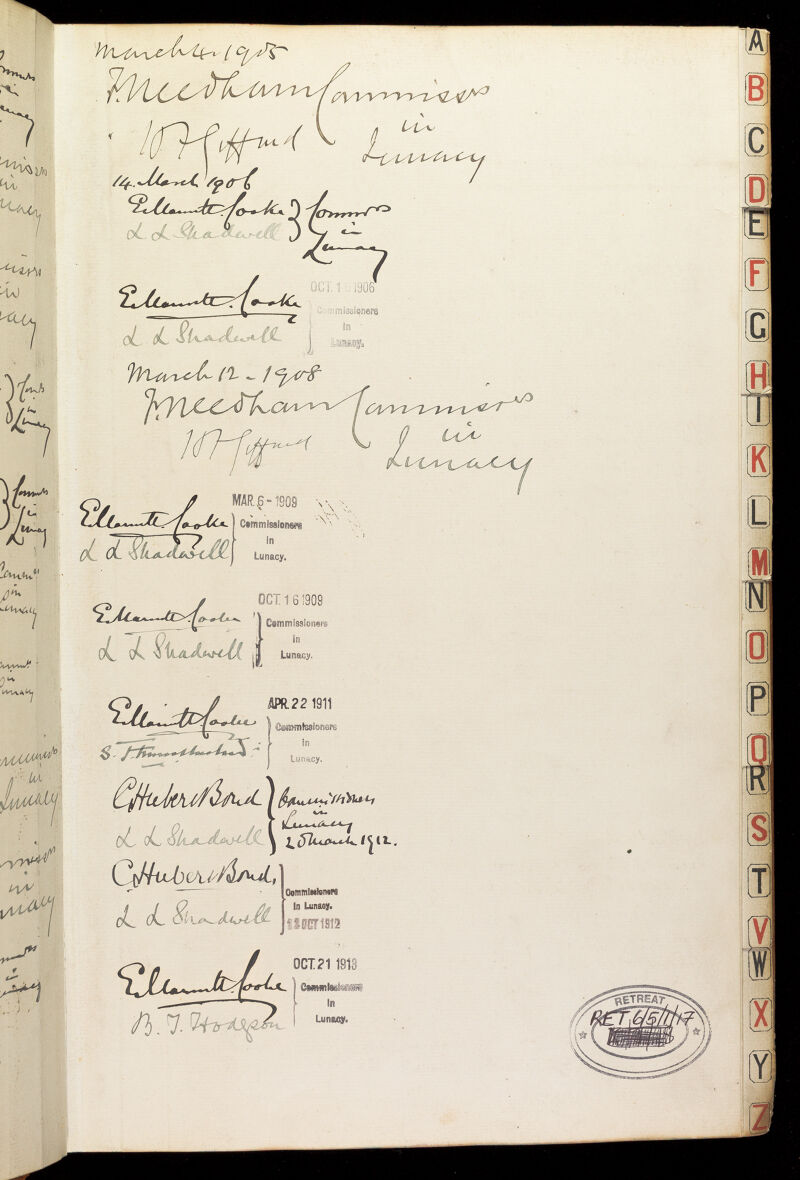 March 4. 1905
F. Needham Commissrs
in
W F Gifford Lunacy
14. March 1906
E. Marriott Cooke } Commrs
in
L L Shadwell Lunacy
OCT. 1 1906
E. Marriott Cooke
Commissioners
in
L L Shadwell
Lunacy.
March 12 - 1908
F. Needham Commissrs
in
Lunacy
MAR. 6 - 1909
E. Marriott Cooke
Commissioners
in
L L Shadwell
Lunacy.
OCT. 16 1909
E. Marriott Cooke
Commissioners
in
L L Shadwell
Lunacy.
APR. 22 1911
E. Marriott Cooke
Commissioners
in
S.
Lunacy.
C. Hubert Bond } Commissioners
in
Lunacy
L L Shadwell
March 1912.
C. Hubert Bond
Commissioners
in Lunacy.
L L Shadwell
12 OCT 1912
OCT. 21 1913
E. Marriott Cooke
Commissioners
in
B. T. Hodgson
Lunacy.
RETREAT
RET 6/5/1/17
A
B
C
D
E
F
G
H
I
K
L
M
N
O
P
Q
R
S
T
V
W
X
Y
Z